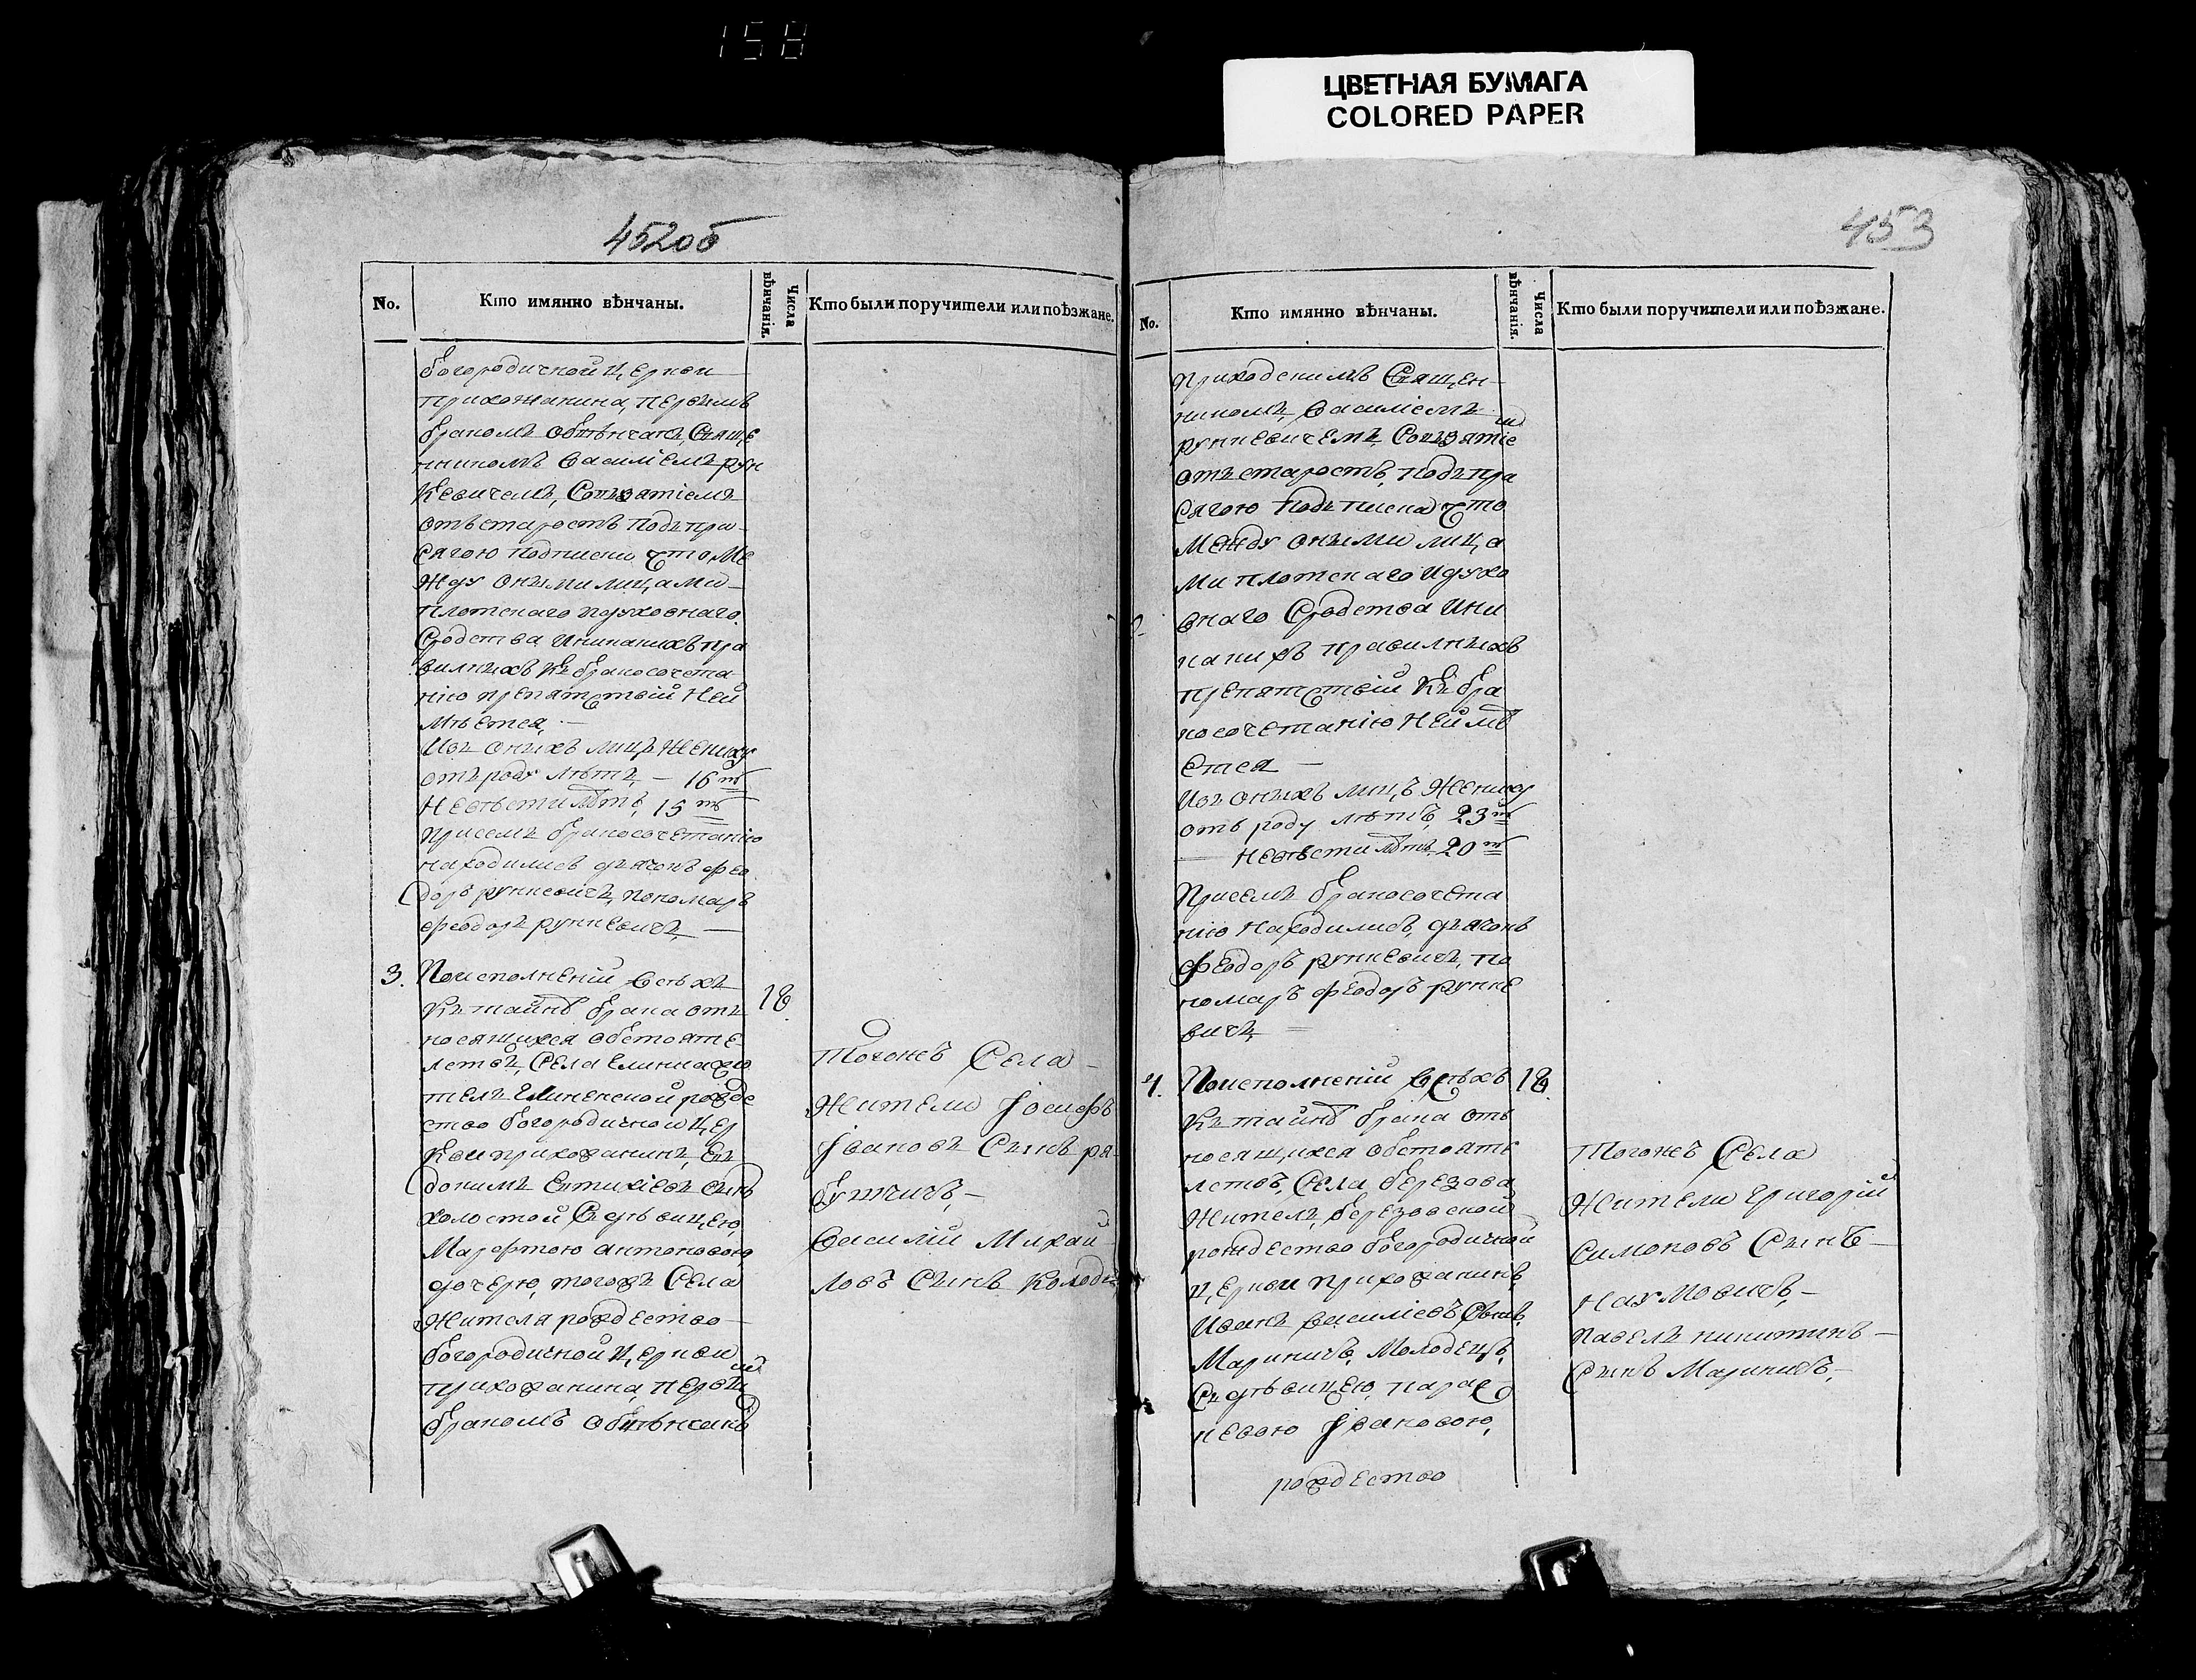 158
ЦВЕТНАЯ БУМАГА
COLORED PAPER
452об
No.
Кто имянно вѣнчаны.
Числа вѣнчанія.
Кто были поручители или поѣзжане.
богородичной Церкви
прихожанина, первымъ
бракомъ обвѣнчанъ, Свяще
нникомъ Василіемъ Рун
кевичемъ, Совзятіемъ
отъ старостъ подъ при-
сягою подписки что ме
жду оными лицами
плотскаго и духовнаго
Сродства и никакихъ пра
вилныхъ къ бракосочета
нію препятствій неи
мѣется,
Изъ оныхъ лицъ жениху
отъ роду лѣтъ, — 16 тъ
Невѣсти лѣтъ, 15 тъ
присемъ бракосочетанію
находились дьячокъ Фео
доръ рункевичъ, пономарь
Феодоръ рункевичъ, —
3.
Поисполненіи всѣхъ
къ тайнѣ брака отъ
носящихся обстояте-
лствъ, Села
18
телъ рожде
ство богородичной Цер
кви прихожанинъ, Ев
докимъ Евтихіевъ сынъ
холостой Сь дѣвицею,
Марфтою антоновою
дочерю, тогожъ Села
жителя рождество
богородичной Церкви
прихожанина, первым
бракомъ обвѣнчанъ
тогожъ Села
Жители Іосифъ
Івановъ Сынъ ря-
бушичъ, —
Василій Михай
ловъ Сынъ
453
No.
Кто имянно вѣнчаны.
Числа вѣнчанія.
Кто были поручители или поѣзжане.
приходскимъ Священ-
никомъ, Василіемъ
рункевичемъ, Совзятіем
отъ старостъ, подъ при
сягою подъ писка что
между оными лица
ми плотскаго и духо
внаго Сродства и ни
какихъ правилныхъ
препятствій къ бра
косочетанію неимѣ
ется —
Изъ оныхъ лицъ Жениху
отъ роду лѣтъ, 23 тъ
— Невѣсти лѣтъ 20 тъ
Присемъ бракосочета
нію находились, дьячокъ
Феодоръ рункевичъ, по
номаръ Феодоръ рунке
вичъ, =
4.
Поисполненіи всѣхъ
18.
къ тайнѣ брака отъ
носящихся обстояте
лствъ, Села березова
Жителъ, березовской
рождество богородичной
Церкви прихожанинъ
Иванъ Василіевъ Сынъ,
Мариничъ, Молодецъ,
Сь дѣвицею, парас
кевою Івановою,
рождество
Тогожъ Села
Жители Григорій
Симоновъ Сынъ
Наумовичъ, —
павелъ никитинъ —
Сынъ Мариничъ, —